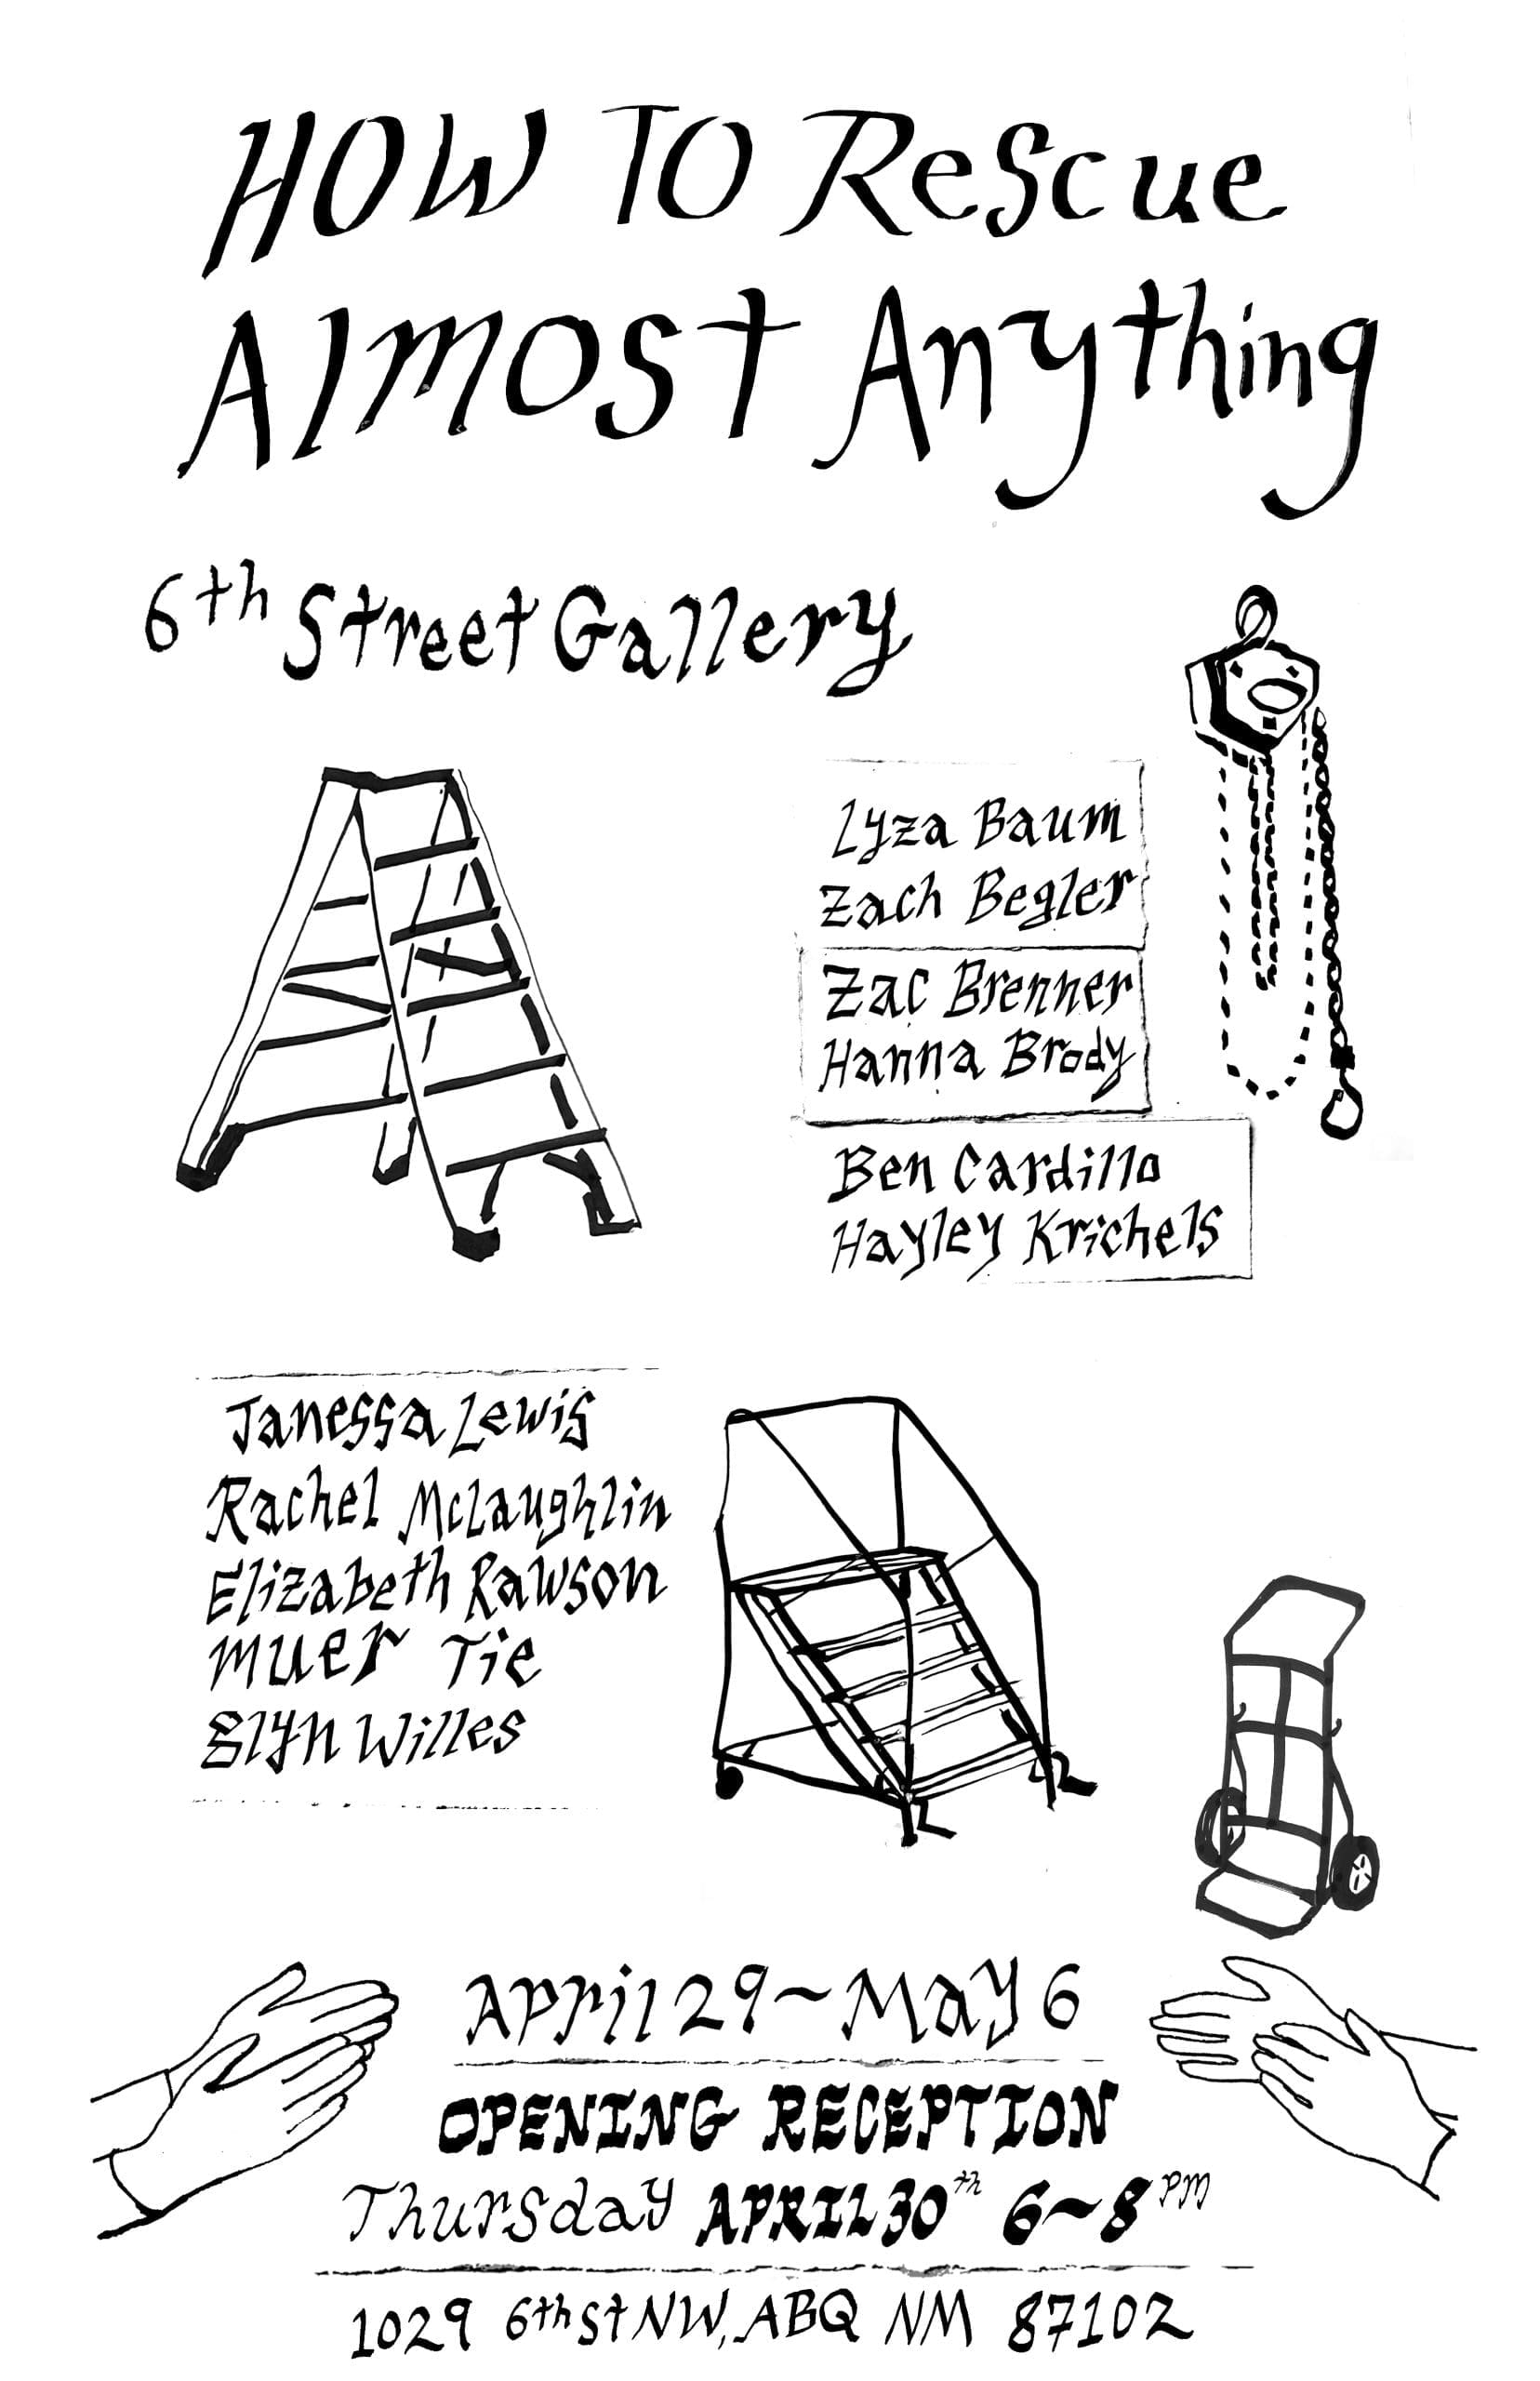 HOW TO Rescue
Almost Anything
6th Street Gallery
Lyza Baum
Zach Begler
Zac Brenner
Hanna Brody
Ben Cardillo
Hayley Krichels
Janessa Lewis
Rachel Mclaughlin
Elizabeth Rawson
Muer Tie
Willes
April 29~May 6
OPENING RECEPTION
Thursday APRIL 30th 6~8PM
1029 6th St NW, ABQ NM 87102